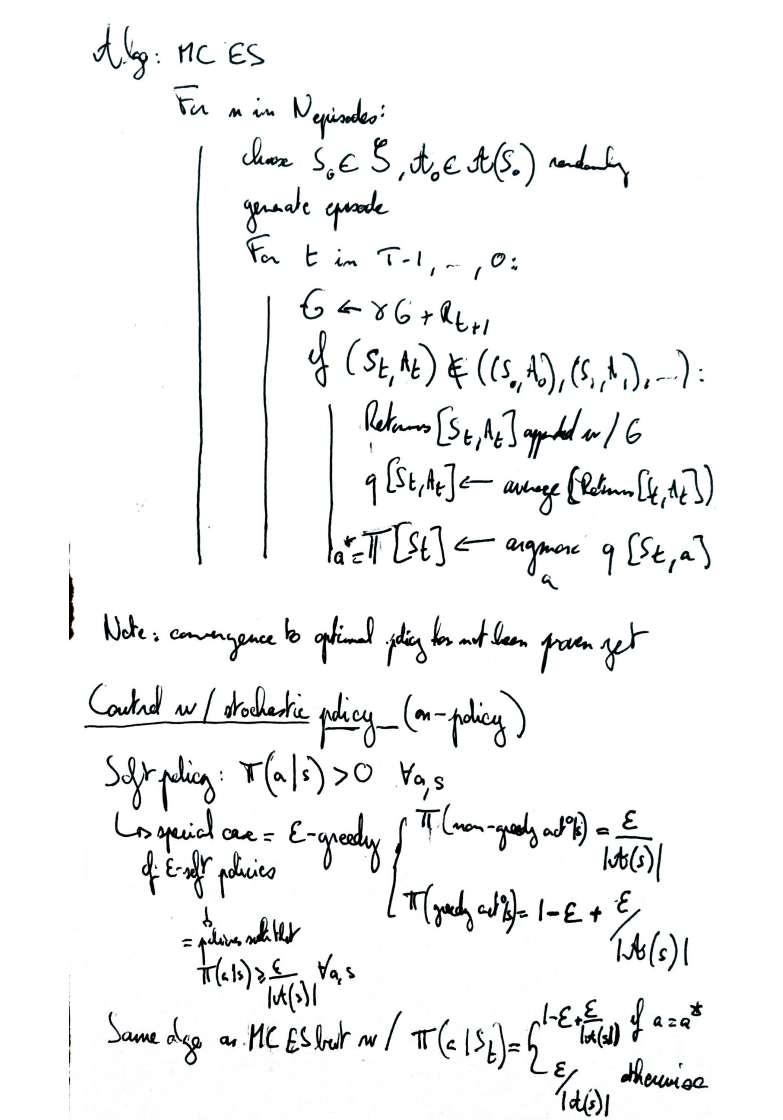 Alg: MC ES
For n in N episodes:
choose S₀ ∈ S, A₀ ∈ A(S₀) randomly
generate episode
For t in T-1, ..., 0:
G ← γG + R_{t+1}
if (S_t, A_t) ∉ ((S₀, A₀), (S₁, A₁), ...):
Returns [S_t, A_t] appended w/ G
q [S_t, A_t] ← average (Returns [S_t, A_t])
a* = π [S_t] ← argmax_a q [S_t, a]
Note: convergence to optimal policy has not been proven yet
Control w/ stochastic policy (on-policy)
Soft policy: π(a|s) > 0 ∀a,s
↳ special case = ε-greedy { π(non-greedy act°|s) = ε/|A(s)|
of ε-soft policies
π(greedy act°|s) = 1-ε + ε/|A(s)|
= policies such that
π(a|s) ≥ ε/|A(s)| ∀a,s
Same algo as MC ES but w/ π(a|S_t) = { 1-ε+ε/|A(s)| if a=a*
ε/|A(s)| otherwise